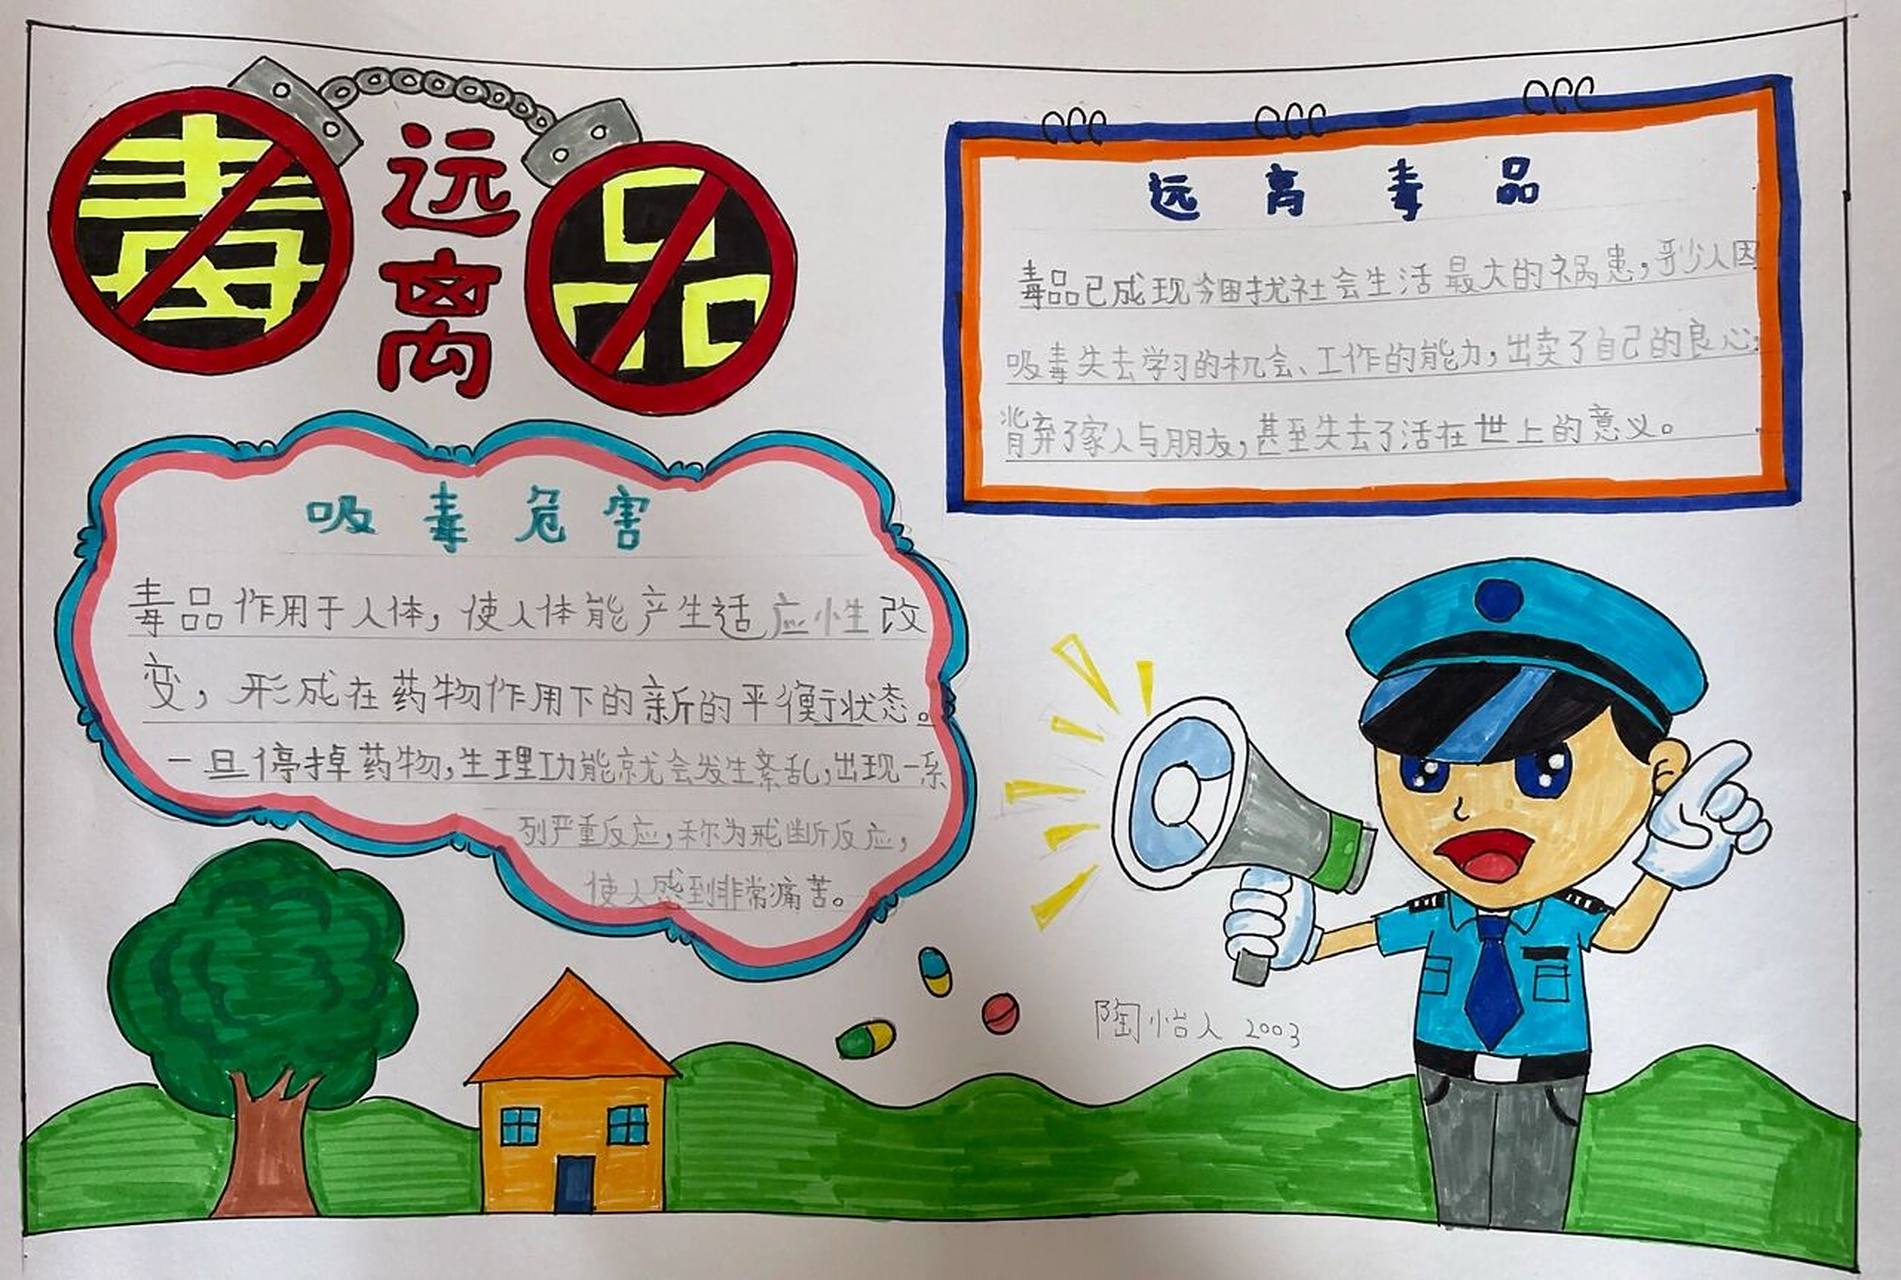 远离
毒品
远离毒品
毒品已成现今困扰社会生活最大的祸患,多少人因
吸毒失去学习的机会、工作的能力,出卖了自己的良心;
背弃了家人与朋友,甚至失去了活在世上的意义。
吸毒危害
毒品作用于人体,使人体能产生适应性改
变,形成在药物作用下的新的平衡状态。
一旦停掉药物,生理功能就会发生紊乱,出现一系
列严重反应,称为戒断反应,
使人感到非常痛苦。
陶怡人 2003